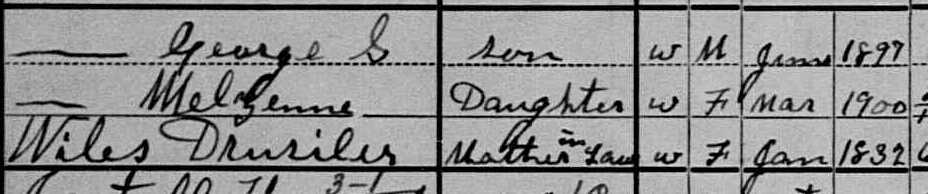 — George G Son W M June 1897
— Daughter W F Mar 1900
Wiles Drusiler Mother in Law W F Jan 1832